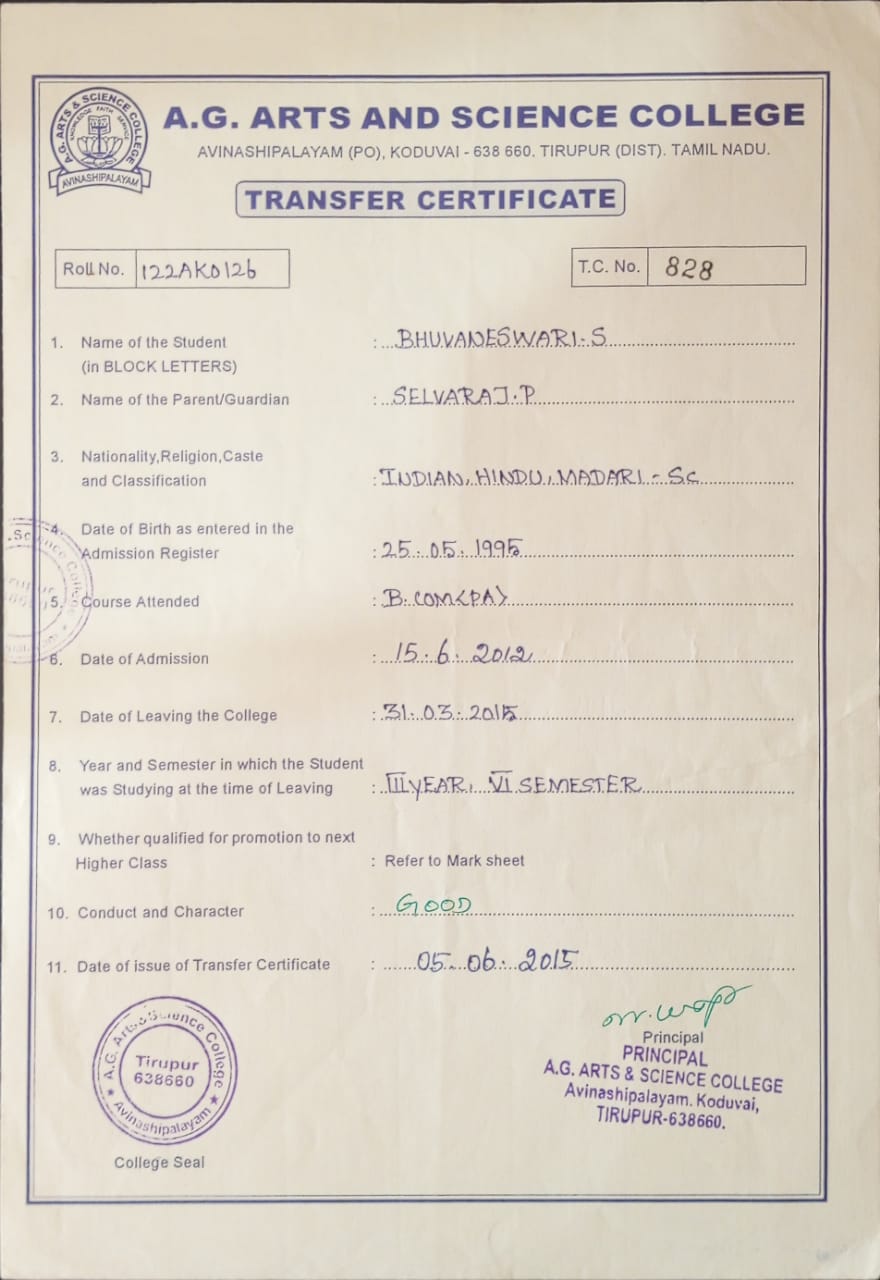 A.G. ARTS & SCIENCE COLLEGE
KNOWLEDGE FAITH SERVICE
AVINASHIPALAYAM
A.G. ARTS AND SCIENCE COLLEGE
AVINASHIPALAYAM (PO), KODUVAI - 638 660. TIRUPUR (DIST). TAMIL NADU.
TRANSFER CERTIFICATE
Roll No. 122AK0126
T.C. No. 828
1. Name of the Student : BHUVANESWARI.S
(in BLOCK LETTERS)
2. Name of the Parent/Guardian : SELVARAJ.P
3. Nationality,Religion,Caste
and Classification : INDIAN, HINDU, MADARI - SC
4. Date of Birth as entered in the
Admission Register : 25.05.1995
5. Course Attended : B.COM(PA)
6. Date of Admission : 15.6.2012
7. Date of Leaving the College : 31.03.2015
8. Year and Semester in which the Student
was Studying at the time of Leaving : III YEAR, VI SEMESTER
9. Whether qualified for promotion to next
Higher Class : Refer to Mark sheet
10. Conduct and Character : GOOD
11. Date of issue of Transfer Certificate : 05.06.2015
A.G. Arts & Science College
Tirupur
638660
Avinashipalayam
College Seal
Principal
PRINCIPAL
A.G. ARTS & SCIENCE COLLEGE
Avinashipalayam. Koduvai,
TIRUPUR-638660.